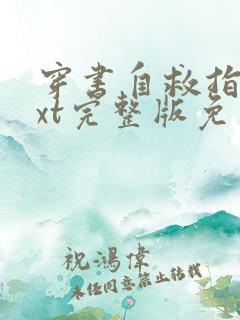 穿书自救指
xt完整版免
祝鸿伟
未经同意禁止转载